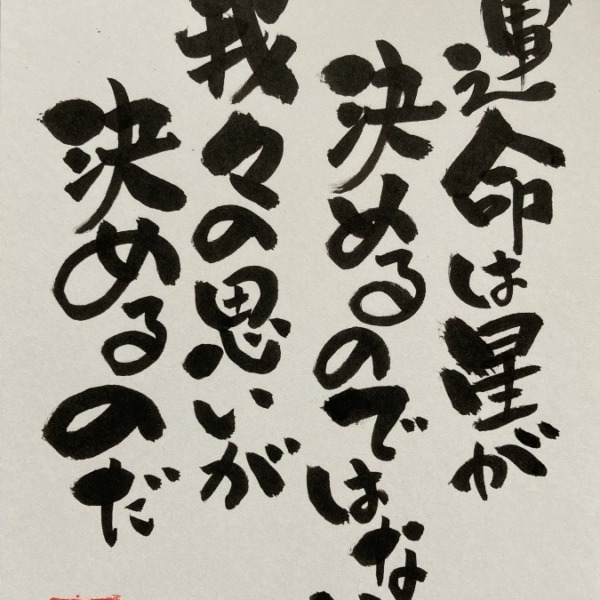 運命は星が
決めるのではな
我々の思いが
決めるのだ